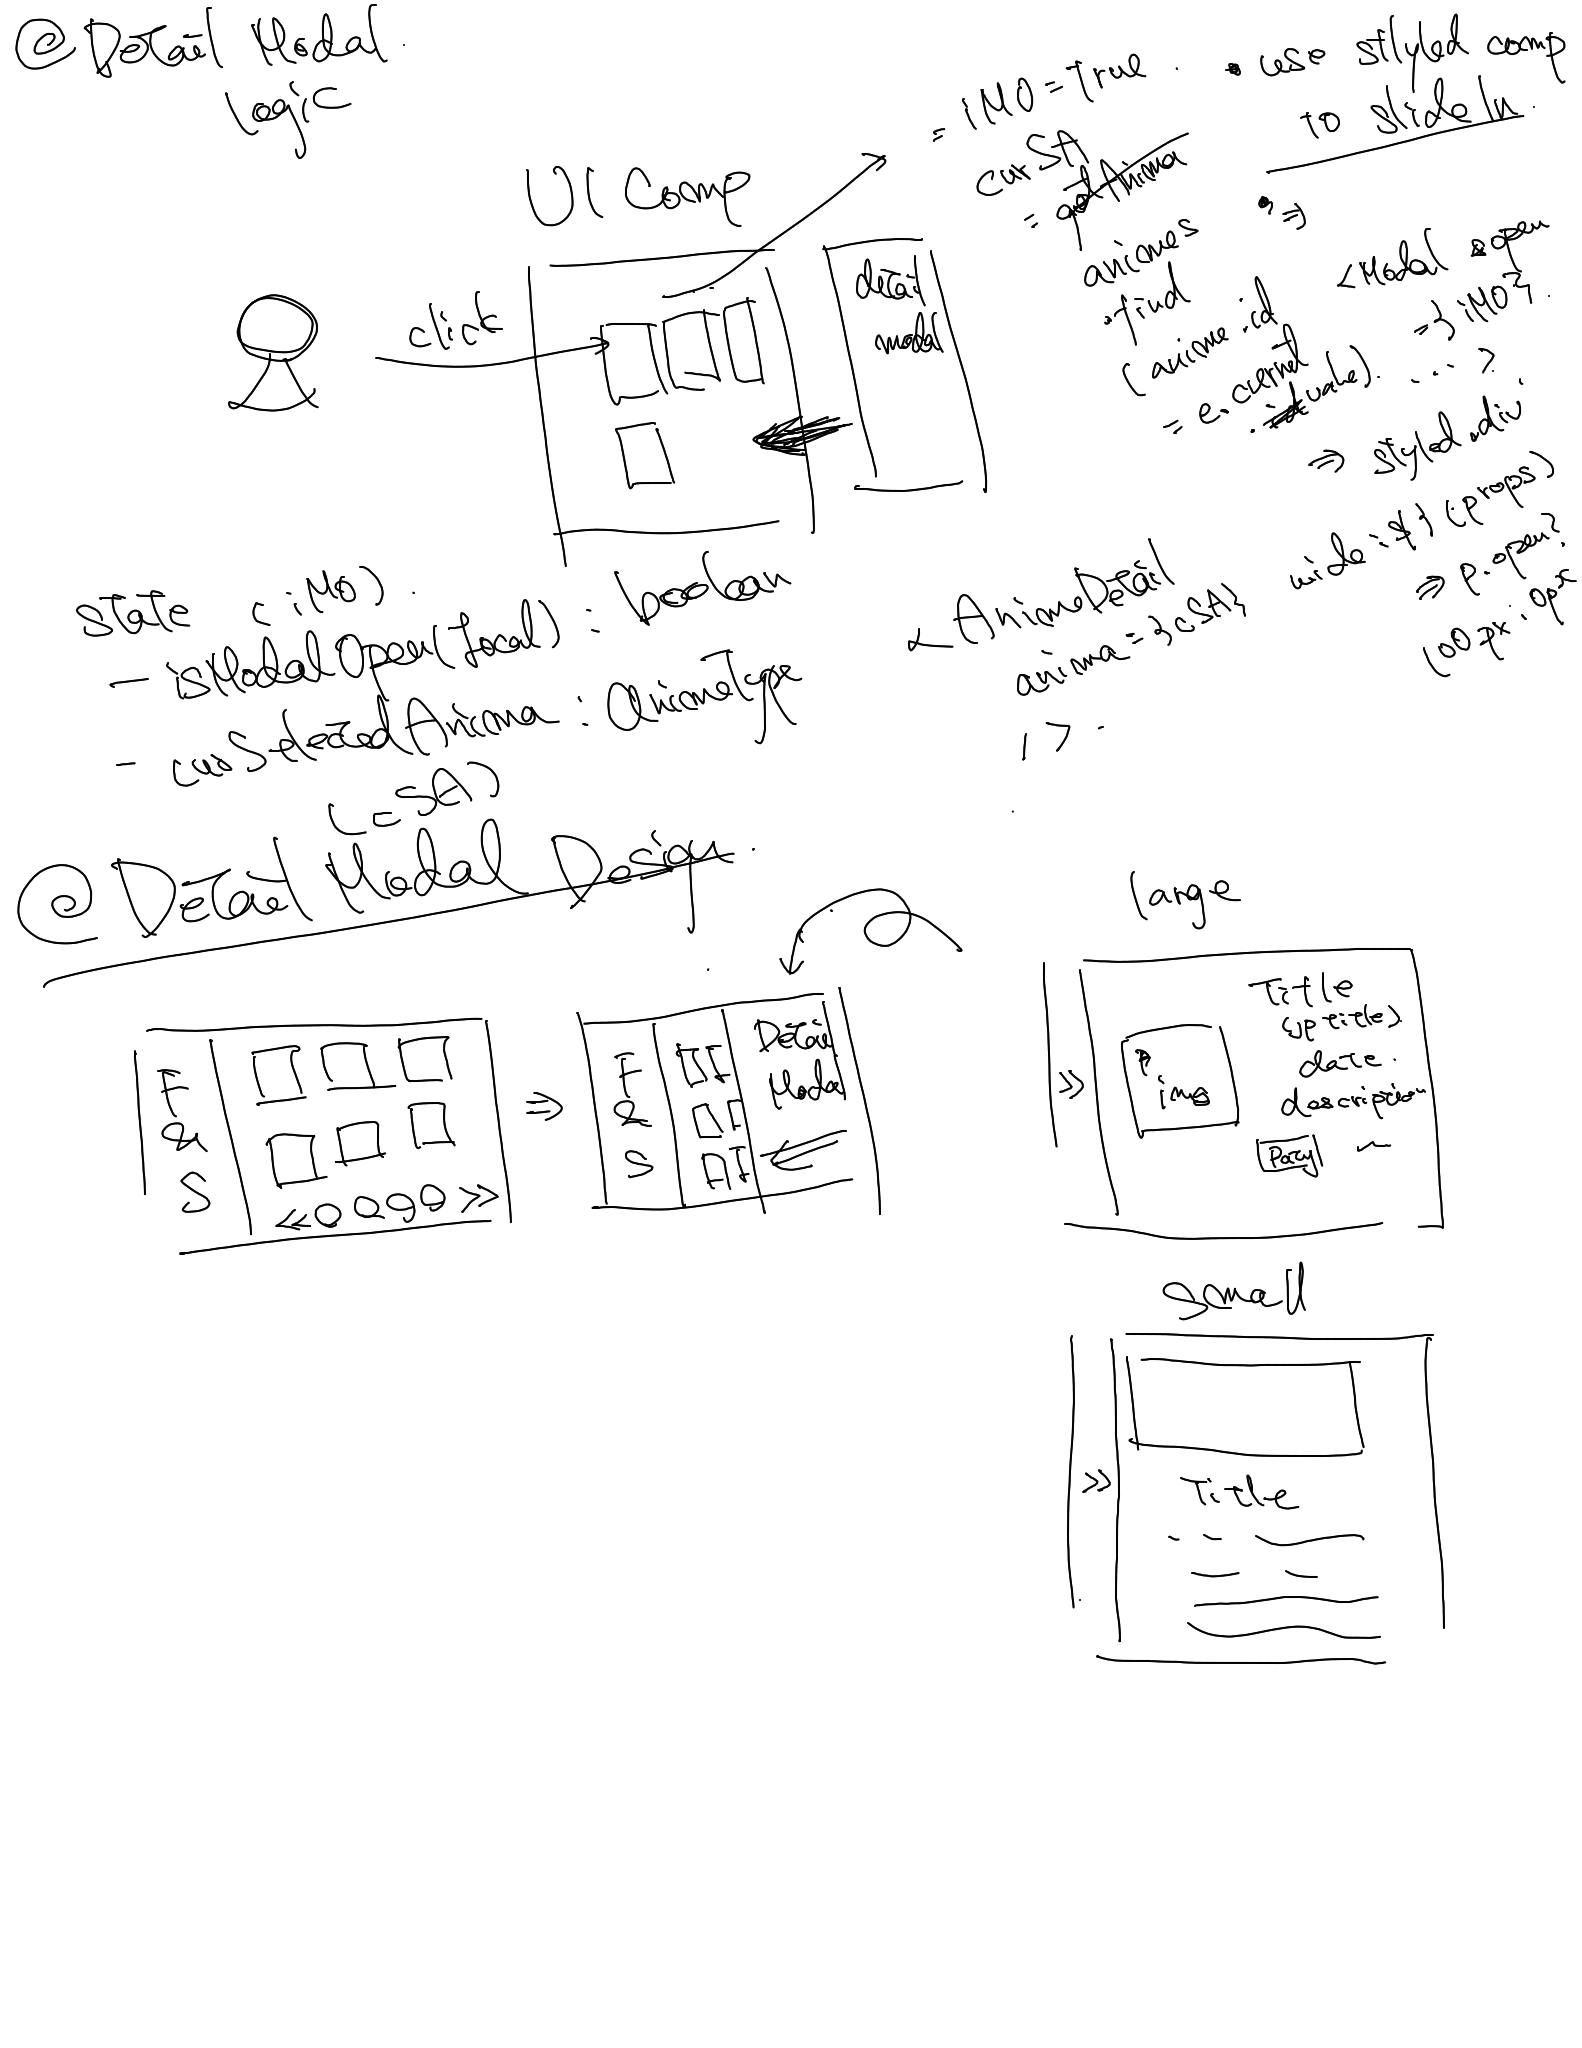 @ Detail Modal
Logic
UI Comp
click
detail
modal
= iMO = true
curSA
= getAnima
animes
.find
(anime.id
= e.curent
.id value).
• use stlyled comp
to slide In.
• ⇒
<Modal open
={iMO}.
... >
⇒ styled.div
wide : \${(props)
⇒ p.open?
100px : 0px
<AnimeDetail
anima={cSA}
/>
state (iMO)
- isModalOpen(Local) : boolean
- curSelectedAnima : AnimeType
(cSA)
@ Detail Modal Design
F
&
S
<< >>
⇒
F
&
S
Detail
Modal
large
>>
img
Title
(jp title)
date.
description
small
>>
Title